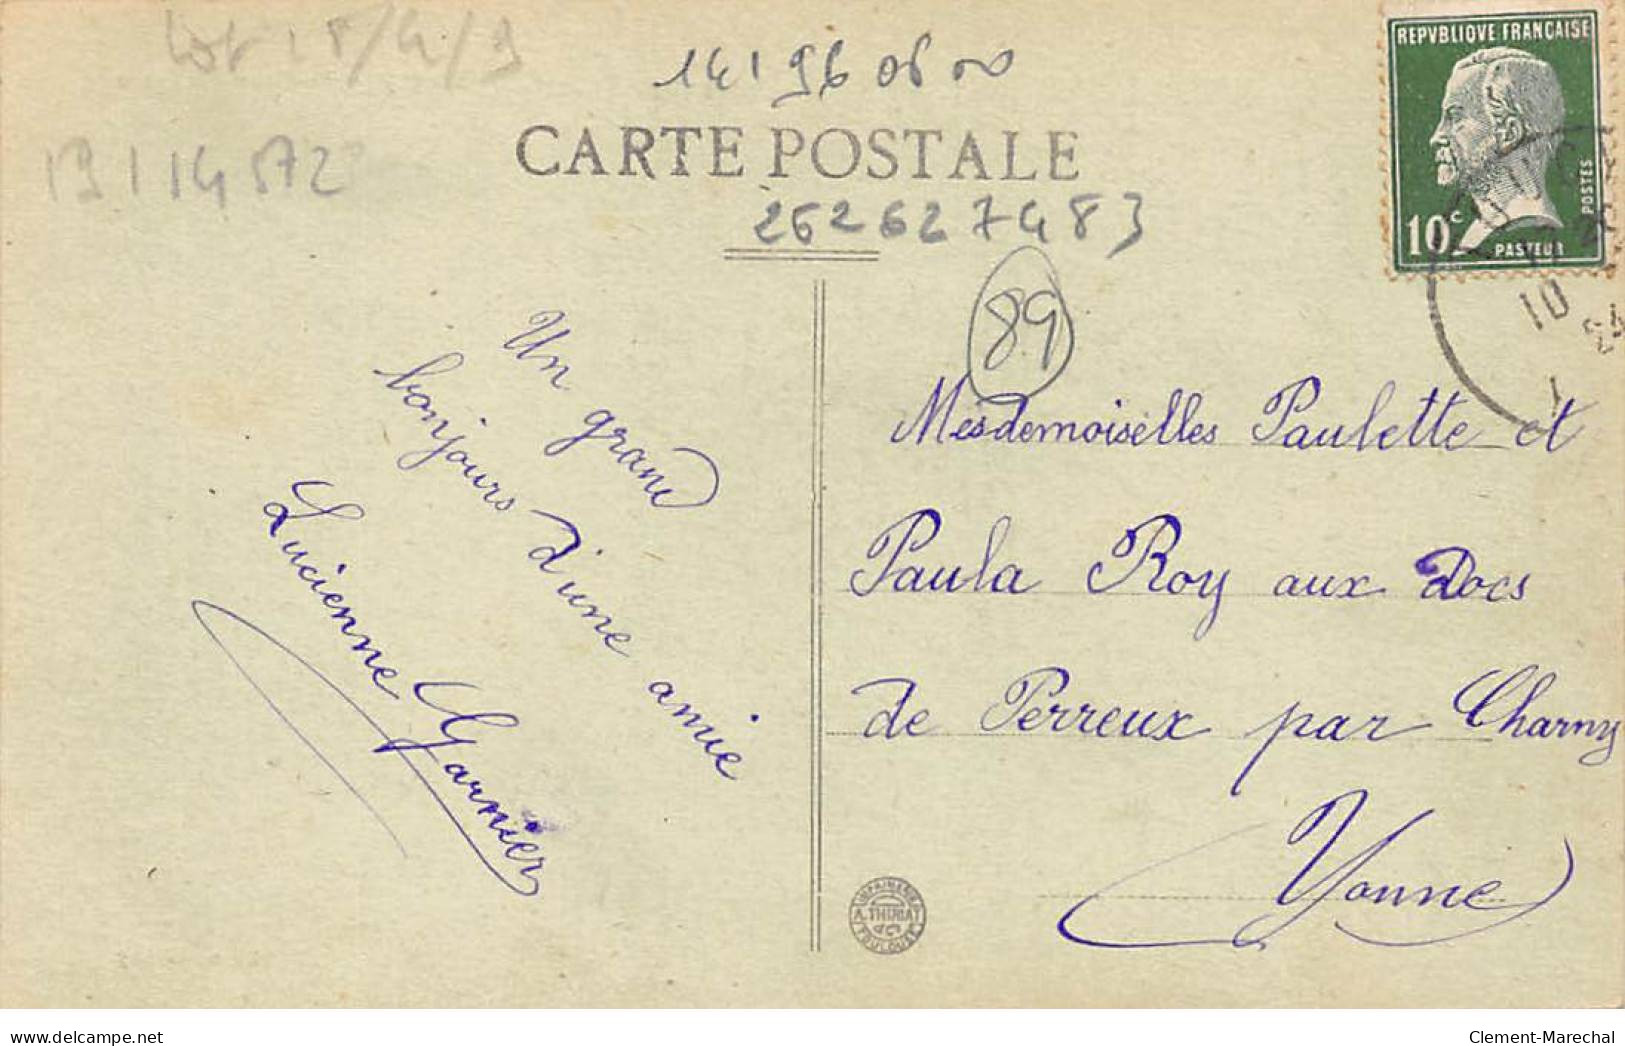 14196 06 00
CARTE POSTALE
262627483
REPVBLIQVE FRANCAISE
10c
POSTES
PASTEUR
10
89
Un grand
bonjours d'une amie
Lucienne Garnier
Mesdemoiselles Paulette et
Paula Roy aux Docs
de Perreux par Charny
Yonne
IMPRIMERIE
A. THIRIAT
TOULOUSE
delcampe.net
Clement-Marechal